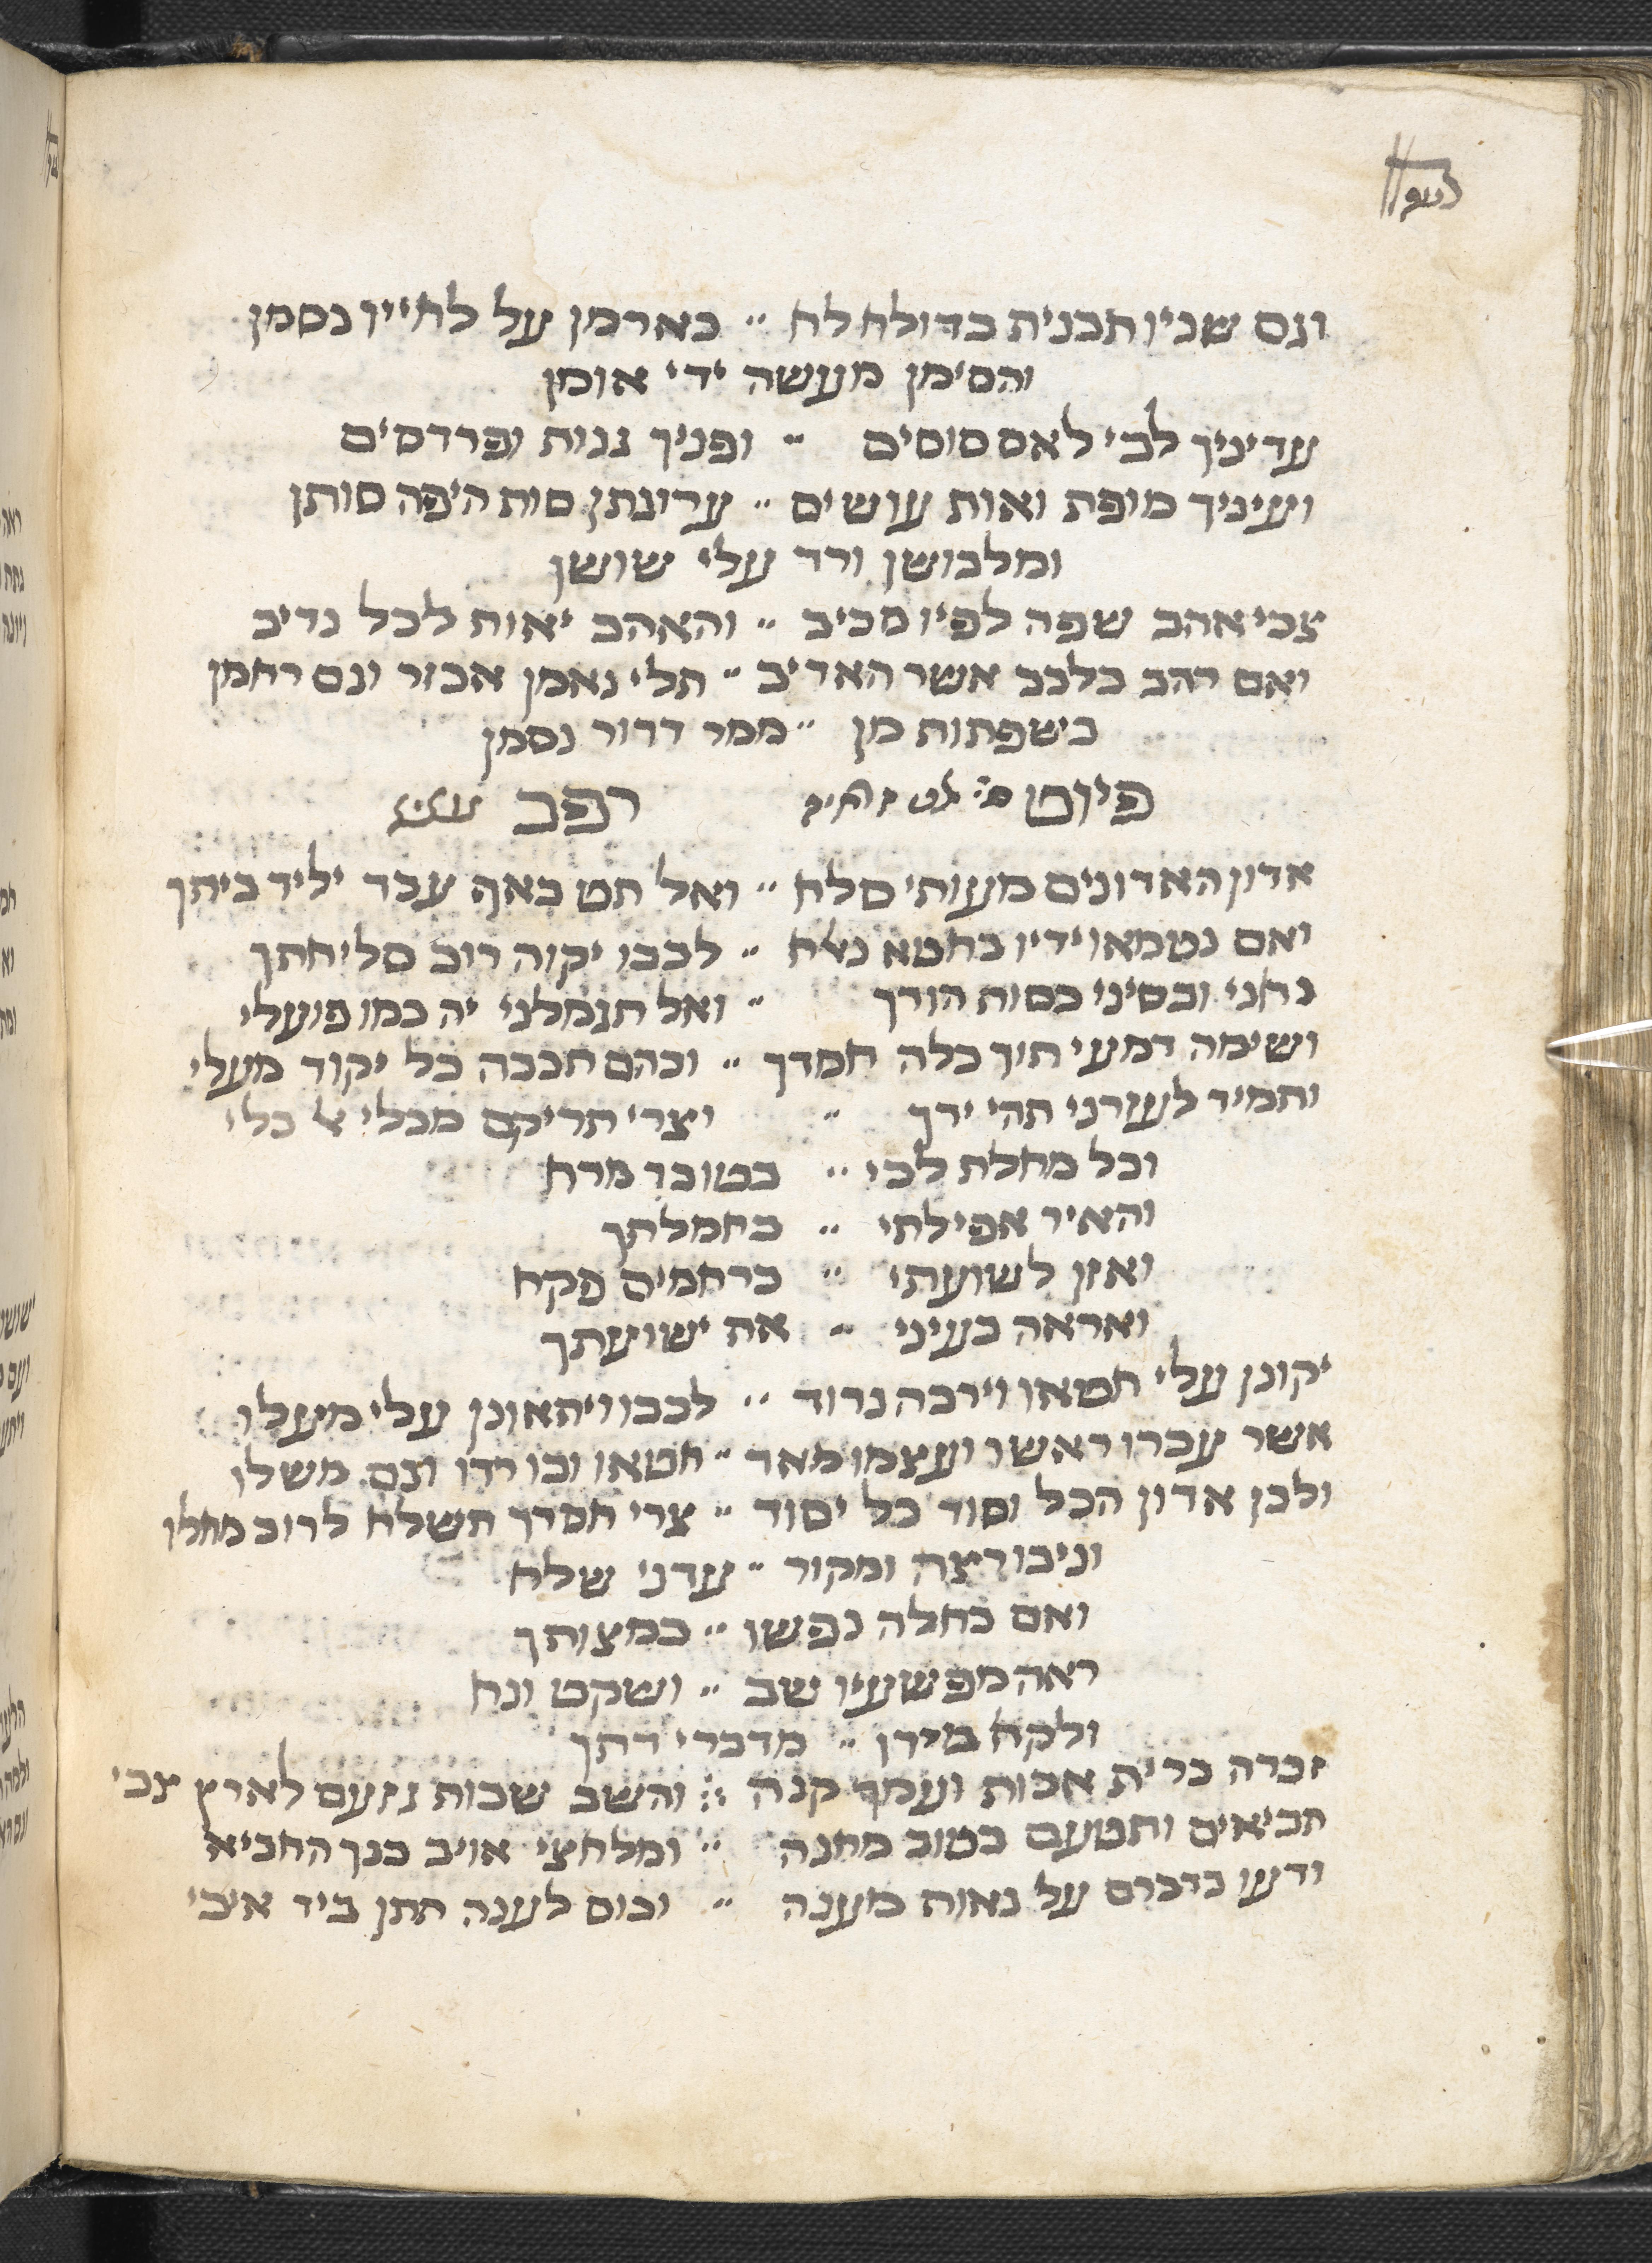 וגם שניו תבנית בדולח לח ״ כארמן על לחייו נסמן
והסימן מעשה ידי אומן
עדיניך לבי לאס סוסים ״ ופניך גנות ופרדסים
ועיניך מופת ואות עושים ״ ערוגתן סות היפה סותן
ומלבושן ורד עלי שושן
צבי אהב שפה לפיו סביב ״ והאהב יאות לכל נדיב
ואם רהב בלבב אשר האדיב ״ תלי נאמן אכזר וגם רחמן
בשפתות מן ״ ממר דרור נסמן
פיוט
אדון האדונים מעותי סלח ״ ואל תט באף עבד יליד ביתך
ואם נטמאו ידיו בחטא נאלח ״ לבבו יקוה רוב סליחתך
נחני וכסיני כסות הודך ״ ואל תגמלני יה כמו פועלי
ושימה דמעי תוך כלה חסדך ״ ובהם תכבה כל יקוד מעלי
ותמיד לעזרני תהי ידך ״ וצרי תריקם מכלי אל כלי
וכל מחלת לבי ״ בטובך מרח
והאיר אפילתי ״ בחמלתך
ואזן לשועתי ״ ברחמים פקח
ואראה בעיני ״ את ישועתך
יקונן עלי חטאו וירבה נדוד ״ לבבו ויתאונן עלי מעלו
אשר עברו ראשו ועצמו מאד ״ חטאו ובו רדו וגם משלו
ולכן אדון הכל וסוד כל יסוד ״ צרי חסדך תשלח לרוב מחלו
וניבו רצה ומקור ״ עדני שלח
ואם נחלה נפשו ״ במצותך
ראה מפשעיו שב ״ ושקט ונח
ולקח מידו ״ מדברי דתך
זכרה ברית אבות ועמך קנה ״ והשב שבות נזעם לארץ צבי
תביאים ותטעם בטוב מחנה ״ ומלחצי אויב בנך החביא
ודעו בדברם על נאות מענה ״ וכוס לענה תתן ביד איבי